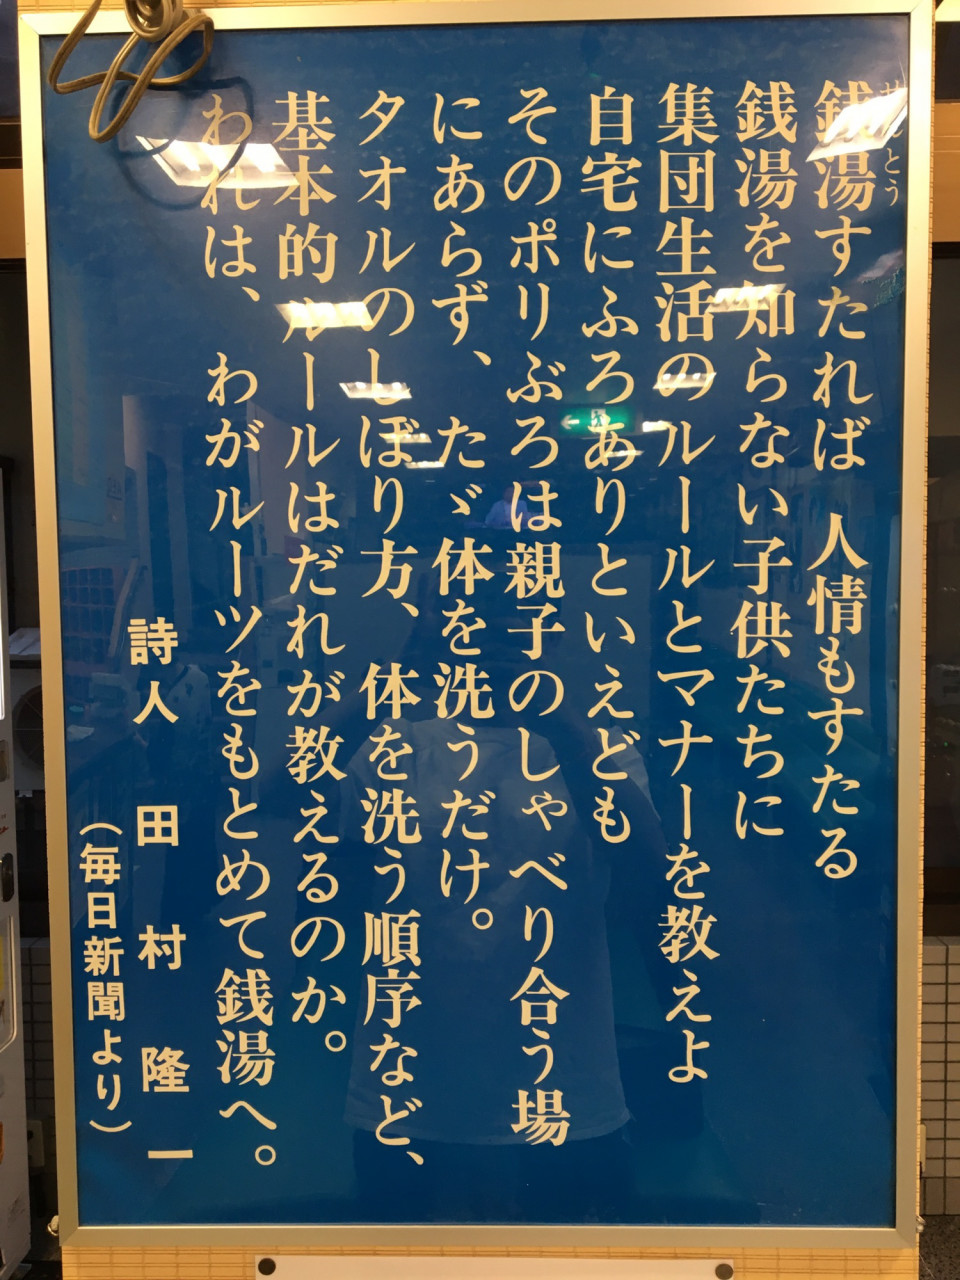 せんとう
銭湯すたれば 人情もすたる
銭湯を知らない子供たちに
集団生活のルールとマナーを教えよ
自宅にふろありといえども
そのポリぶろは親子のしゃべり合う場
にあらず、たゞ体を洗うだけ。
タオルのしぼり方、体を洗う順序など、
基本的ルールはだれが教えるのか。
われは、わがルーツをもとめて銭湯へ。
詩人 田村隆一
(毎日新聞より)